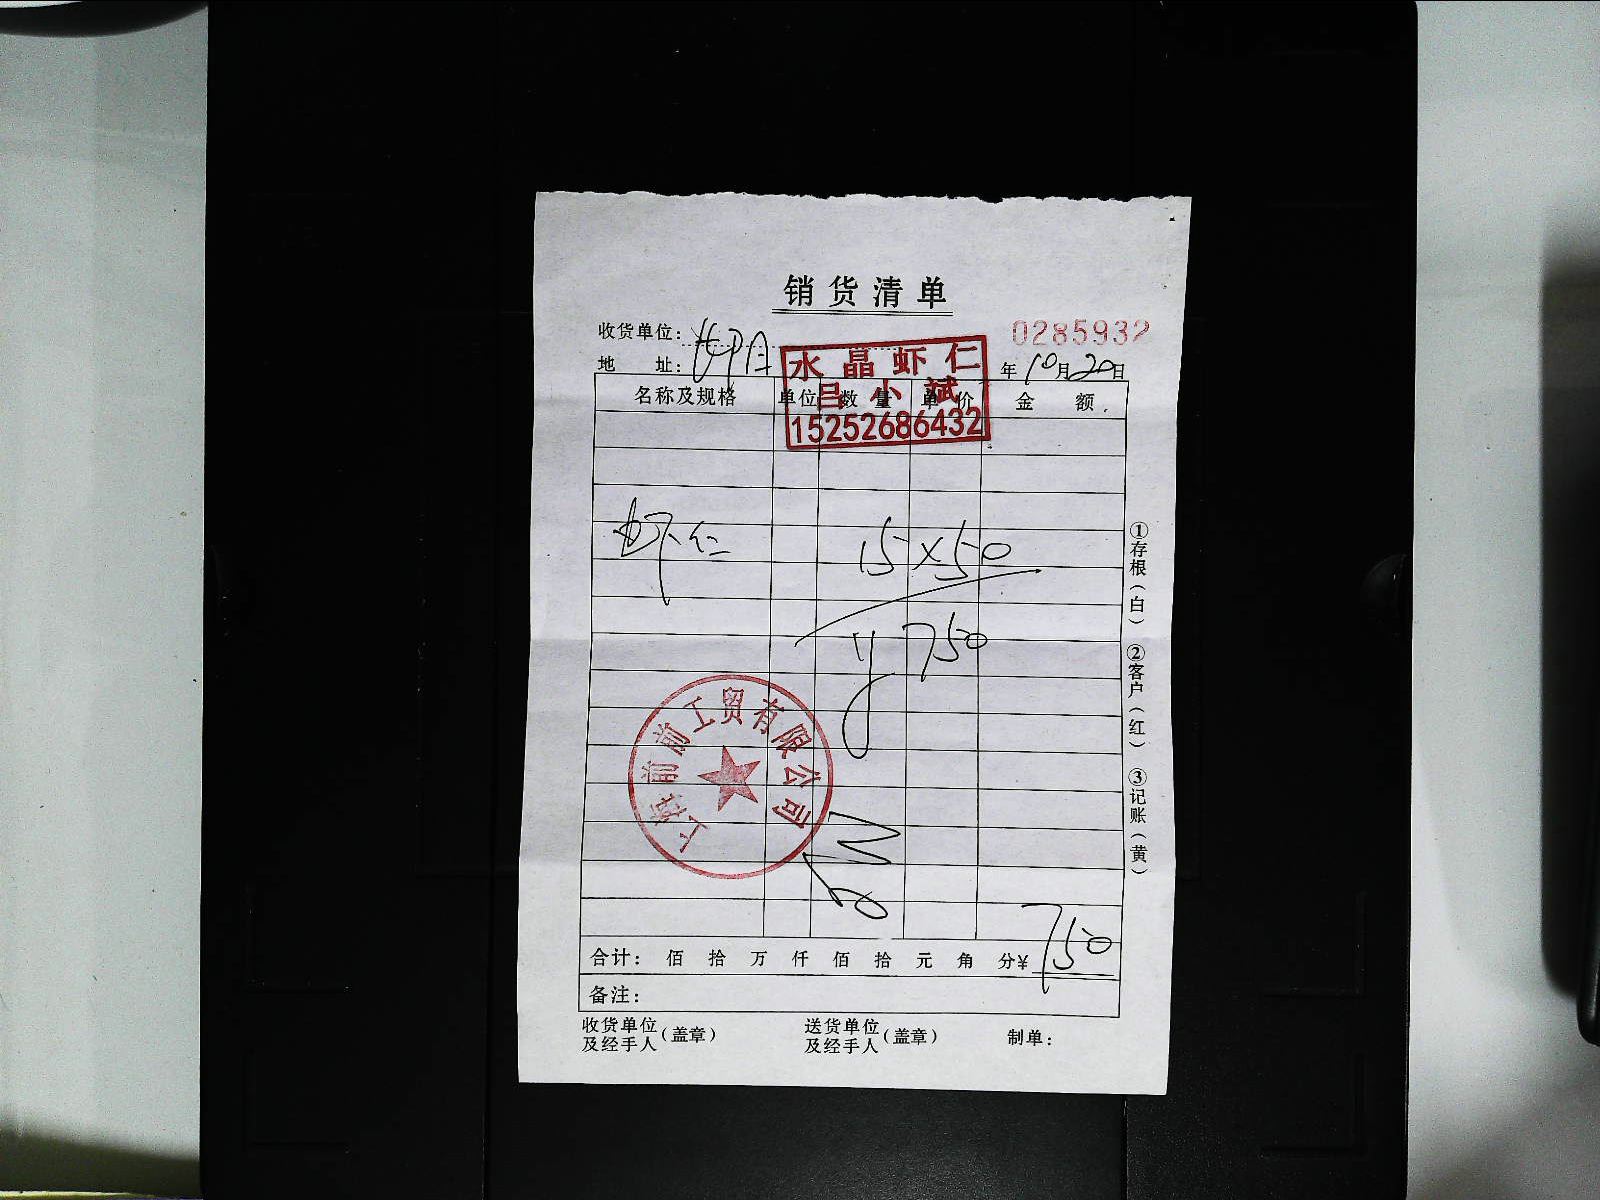 销货清单
收货单位:
0285932
地 址:
年10月20日
水晶虾仁
吕小斌
15252686432
名称及规格 单位 数量 单价 金额
虾仁 15×50
750
上海前前工贸有限公司
合计: 佰 拾 万 仟 佰 拾 元 角 分¥750
备注:
收货单位及经手人(盖章) 送货单位及经手人(盖章) 制单:
①存根(白) ②客户(红) ③记账(黄)